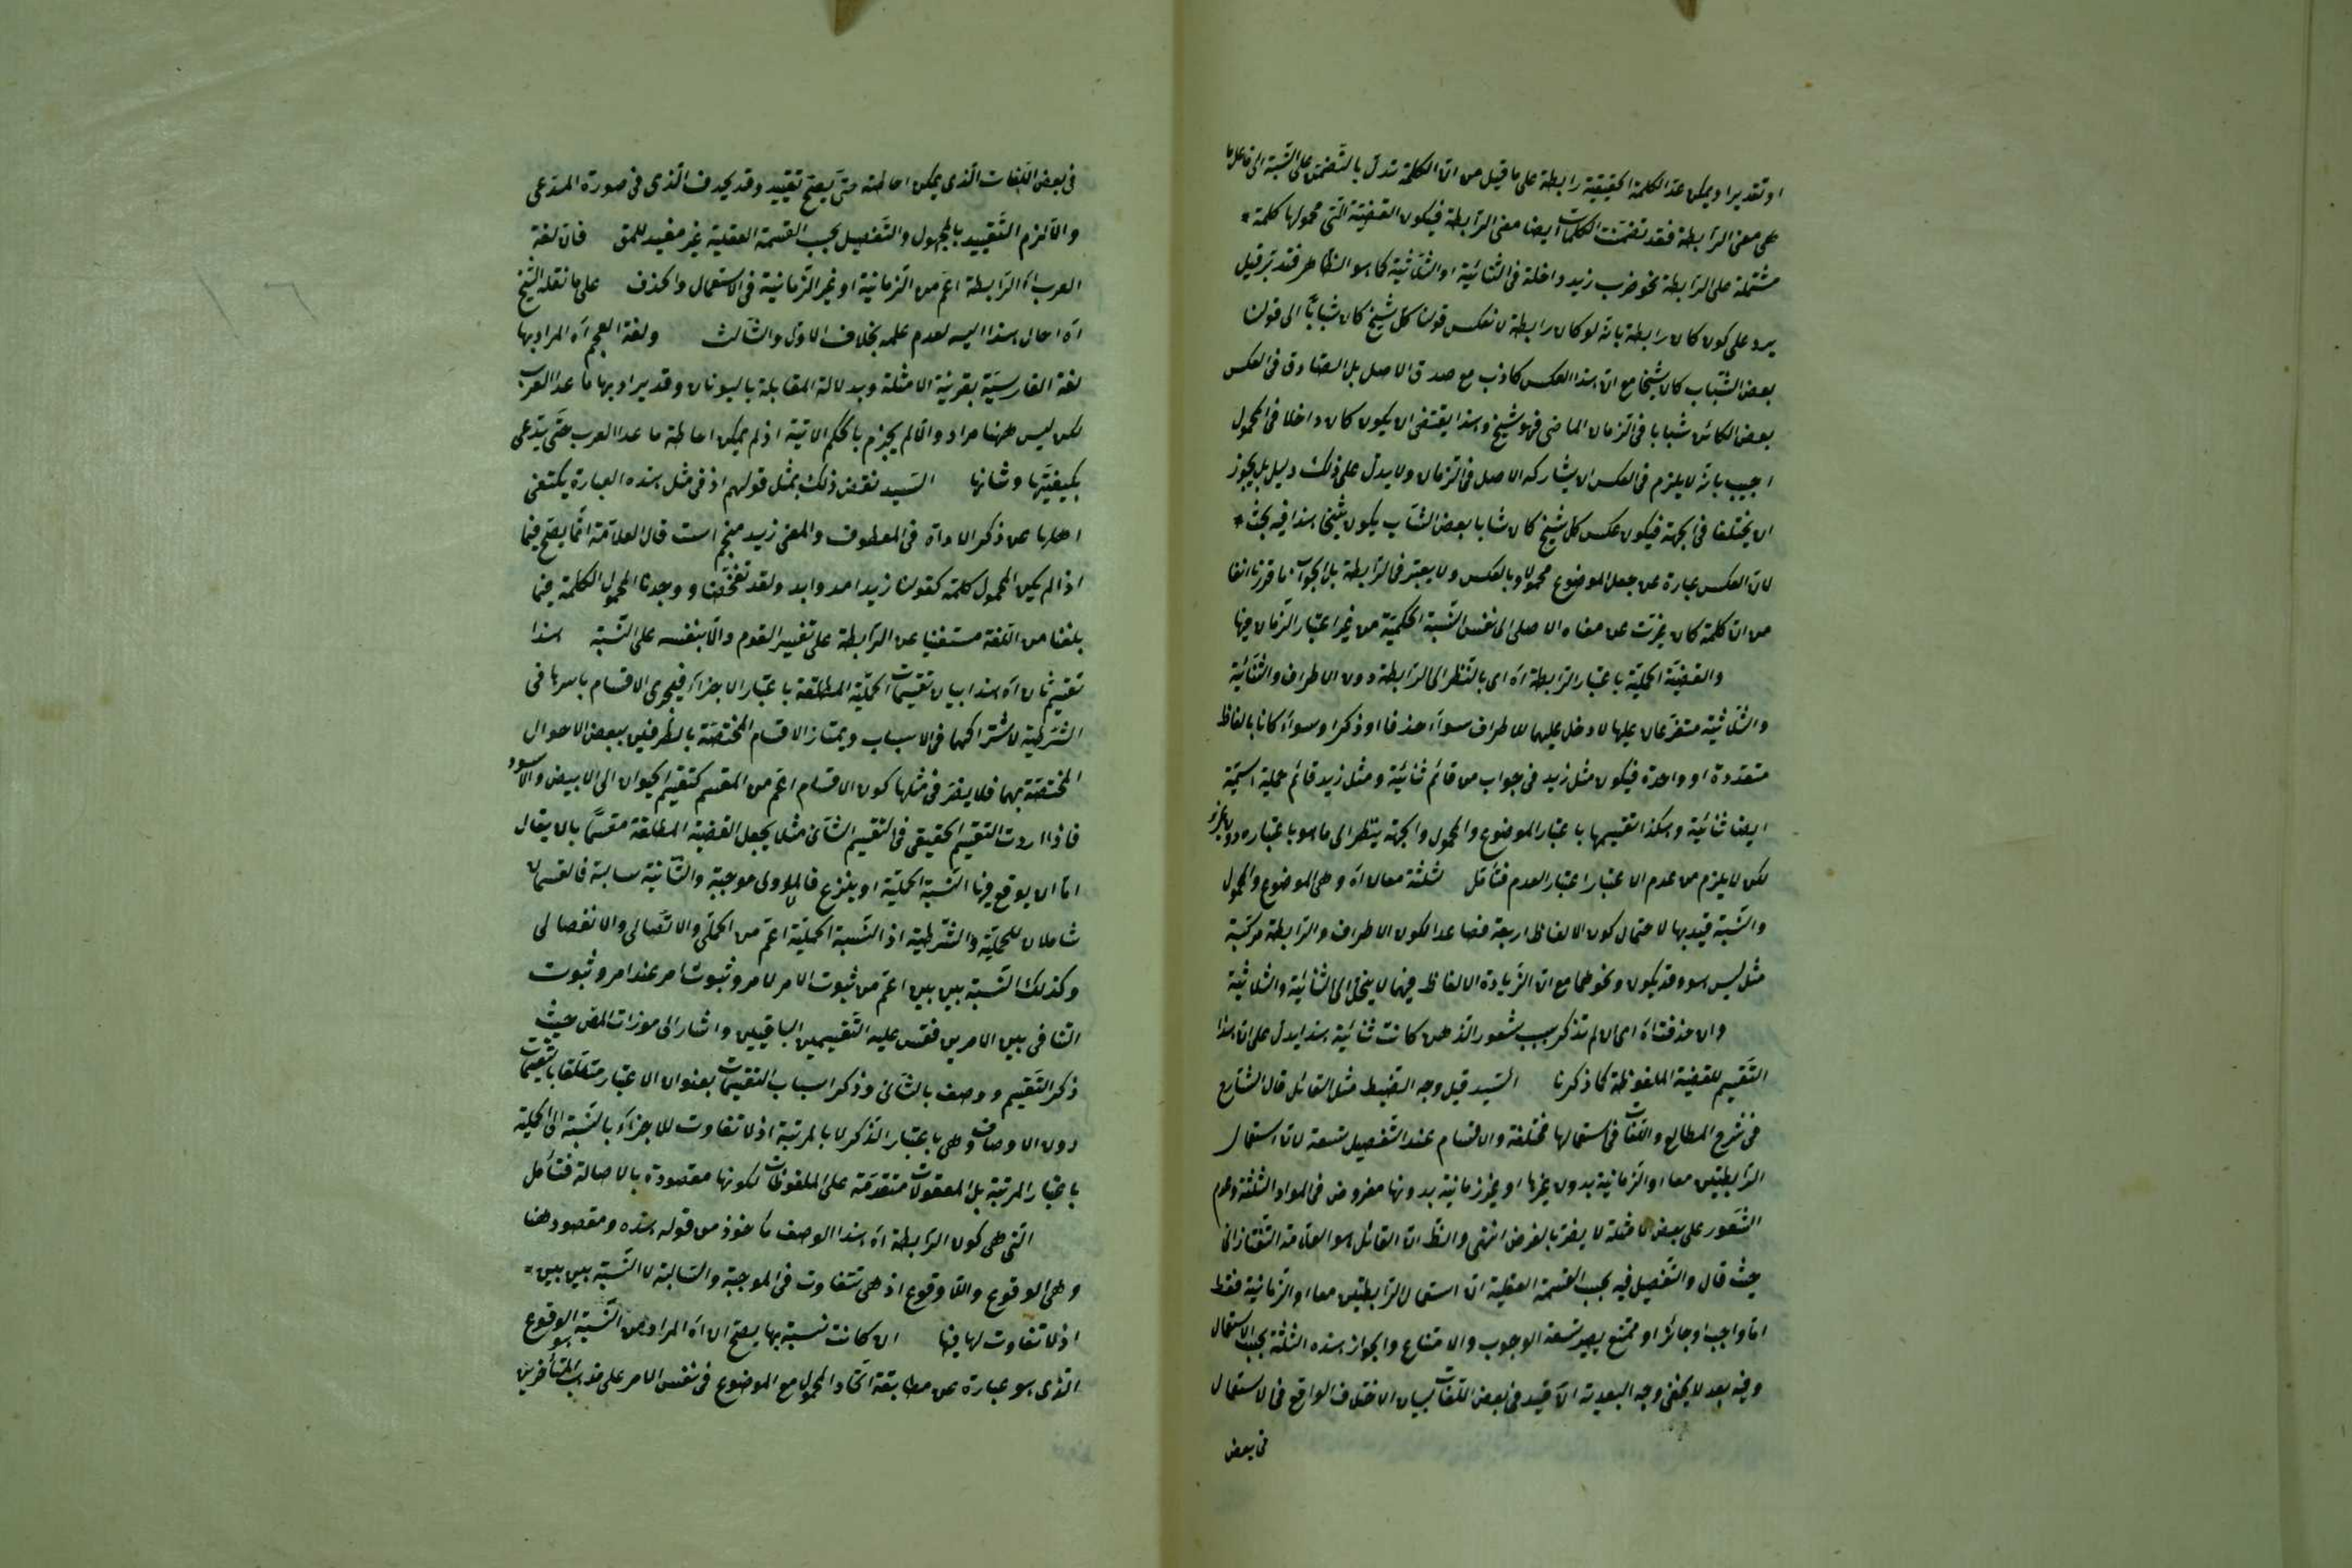 او تقديرا ويمكن عد الكلمة الحقيقية رابطة على ما قيل من ان الكلمة تدل بالتضمن على النسبة الى فاعل ما
هى معنى الرابطة فقد تضمنت الكلمات ايضا معنى الرابطة فيكون القضية التى محمولها كلمة
مشتملة على الرابطة نحو ضرب زيد داخلة فى الثنائية او الثلاثية كما هو الظاهر فتدبر قيل
يرد على كون كان رابطة بانه لو كان رابطة لانعكس قولنا كل شيخ كان شابا الى قولنا
بعض الشباب كان شيخا مع ان هذا العكس كاذب مع صدق الاصل بل الصادق فى العكس
بعض الكائن شبابا فى الزمان الماضى فهو شيخ وهذا يقتضى ان يكون كان داخلا فى المحمول
اجيب بانه لا يلزم فى العكس ان يشاركه الاصل فى الزمان ولا يدل على ذلك دليل بل يجوز
ان يختلفا فى الجهة فيكون عكس كل شيخ كان شابا بعض الشاب يكون شيخا هذا فيه بحث
لان العكس عبارة عن جعل الموضوع محمولا وبالعكس ولا يعتبر فى الرابطة بل الجواب ما قررنا انفا
من ان كلمة كان غيرت عن معناه الاصلى الى نفس النسبة الحكمية من غير اعتبار الزمان فيها
والقضية الحملية باعتبار الرابطة اه اى بالنظر الى الرابطة دون الاطراف والثنائية
والثلاثية متفرعان عليها لا دخل عليهما للاطراف سواء حذفا او ذكرا وسواء كانا بالفاظ
متعددة او واحدة فيكون مثل زيد فى جواب من قائم ثنائية ومثل زيد قائم حملية اسمية
ايضا ثنائية وهكذا تقسيمها باعتبار الموضوع والمحمول والجهة ينظر الى ما هو باعتباره دون غيره
لكن لا يلزم من عدم الاعتبار اعتبار العدم فتأمل لثلثة معان اه وهى الموضوع والمحمول
والنسبة قيد بها لاحتمال كون الالفاظ اربعة فصاعدا لكون الاطراف والرابطة مركبة
مثل ليس هو وقد يكون ونحوهما مع ان الزيادة الالفاظ فيهما لا يخل الى الثنائية والثلاثية
وان حذفت اه اى ان لم تذكر بسبب شعور الذهن كانت ثنائية هذا يدل على ان هذا
التقسيم للقضية الملفوظة كما ذكرنا السيد قيل وجه الضبط مثل القائل قال الشارح
فى شرح المطالع واللغات فى استعمالها مختلفة والاقسام عند التفصيل تسعة لان استعمال
الرابطتين معا او الزمانية بدون غيرها او غير زمانية بدونها مفروض فى المواد الثلثة وعدم
الشعور على بعض الامثلة لا يضر بالغرض انتهى والظ ان القائل هو العلامة التفتازانى
حيث قال والتفصيل فيه بحسب القسمة العقلية ان استعمال الرابطتين معا او الزمانية فقط
اما واجب او جائز او ممتنع يصير تسعة الوجوب والامتناع والجواز هذه الثلثة بحسب الاستعمال
وفيه بعد لا يخفى وجه البعدية ان قيد فى بعض اللغات لبيان الاختلاف الواقع فى الاستعمال
فى بعض
فى بعض اللغات الذى يمكن احاطته حتى يصح تقييد وقد يحذف الذى فى صورة المدعى
والا لزم التقييد بالمجهول والتفصيل بحسب القسمة العقلية غير مفيد للمق فان لغة
العرب اه الرابطة اعم من الزمانية او غير الزمانية فى الاستعمال والحذف على ما نقله الشيخ
اه احال هذا اليه لعدم علمه بخلاف الاول والثالث ولغة العجم اه المراد بها
لغة الفارسية بقرينة الامثلة وبدلالة المقابلة باليونان وقد يراد بها ما عدا العرب
لكن ليس ههنا مراد والا لم يجزم بالحكم الاتية اذ لم يمكن احاطة ما عدا العرب حتى يدعى
بكيفيتها وشانها السيد نقض ذلك بمثل قولهم اذ فى مثل هذه العبارة يكتفى
اهلها عن ذكر الاداة فى المعطوف والمعنى زيد منجم است قال العلامة انما يصح فيما
اذا لم يكن المحمول كلمة كقولنا زيد امد وابد ولقد تفحصنا ووجدنا المحمول الكلمة فيما
بلغنا من اللغة مستغنيا عن الرابطة على تفسير القوم والا بنفسه على النسبة هذا
تقسيم ثان اه هذا بيان تقسيمات الحملية المطلقة باعتبار الاجزاء فيجرى الاقسام باسرها فى
الشرطية لاشتراكهما فى الاسباب ويمتاز الاقسام المختصة بالطرفين ببعض الاحوال
المختصة بهما فلا يضر فى مثلها كون الاقسام اعم من المقسم كتقسيم الحيوان الى الابيض والاسود
فاذا اردت التقسيم الحقيقى فى التقسيم الثانى مثلا يجعل القضية المطلقة مقسما بان يقال
اما ان يوقع فيها النسبة الحكمية او ينزع فالاولى موجبة والثانية سالبة فالقسمان
شاملان للحملية والشرطية اذ النسبة الحكمية اعم من الحملى والاتصالى والانفصالى
وكذلك النسبة بين بين اعم من ثبوت الامر لامر وثبوت امر عند امر وثبوت
التنافى بين الامرين فقس عليه التقسيمين الباقيين واشار الى موزات المص حيث
ذكر التقسيم ووصف بالثانى وذكر اسباب التقسيمات بعنوان الاعتبار متعلقا بتقسيمات
دون الاوصاف وهى باعتبار الذكر لا بالمرتبة اذ لا تفاوت للاجزاء بالنسبة الى الحملية
باعتبار المرتبة بل المعقولات متقدمة على الملفوظات لكونها مقصودة بالاصالة فتأمل
التى هى كون الرابطة اه هذا الوصف مأخوذ من قوله هذه ومقصود هنا
وهى الوقوع واللاوقوع اذ هى تتفاوت فى الموجبة والسالبة لا النسبة بين بين
اذ لا تفاوت لها فيها ان كانت نسبة بها يصح ان اه المراد من النسبة هو الوقوع
الذى هو عبارة عن مطابقة اتحاد المحمول مع الموضوع فى نفس الامر على مذهب المتأخرين